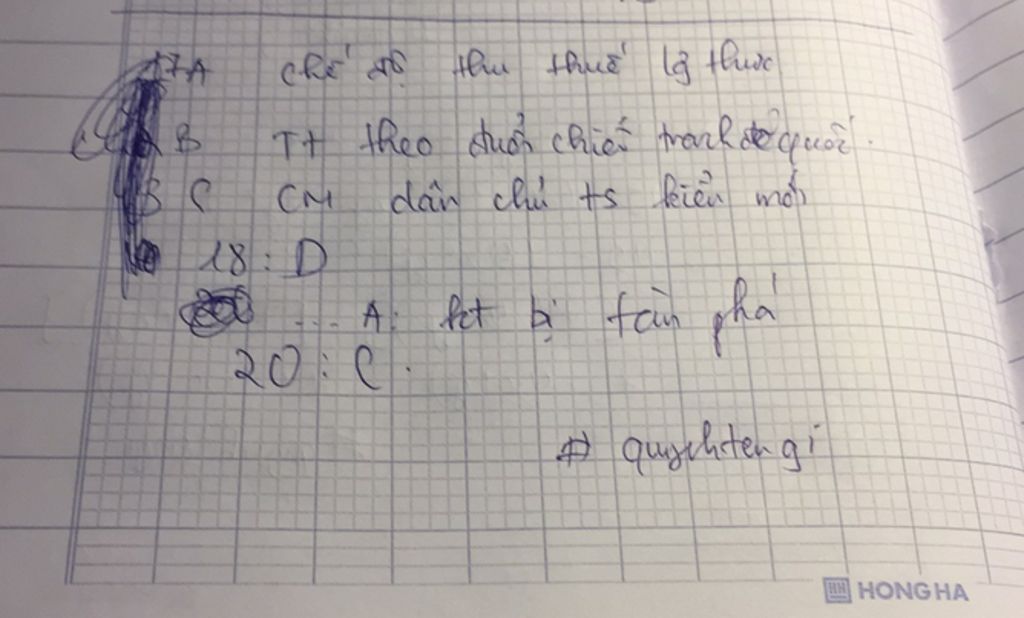 17A chế độ thu thuế lg thực
B TT theo đuổi chiến tranh đế quốc.
B C CM dân chủ ts kiểu mới
18 : D
... A: kt bị tàn phá
20 : C.
# quychten gì
HONG HA